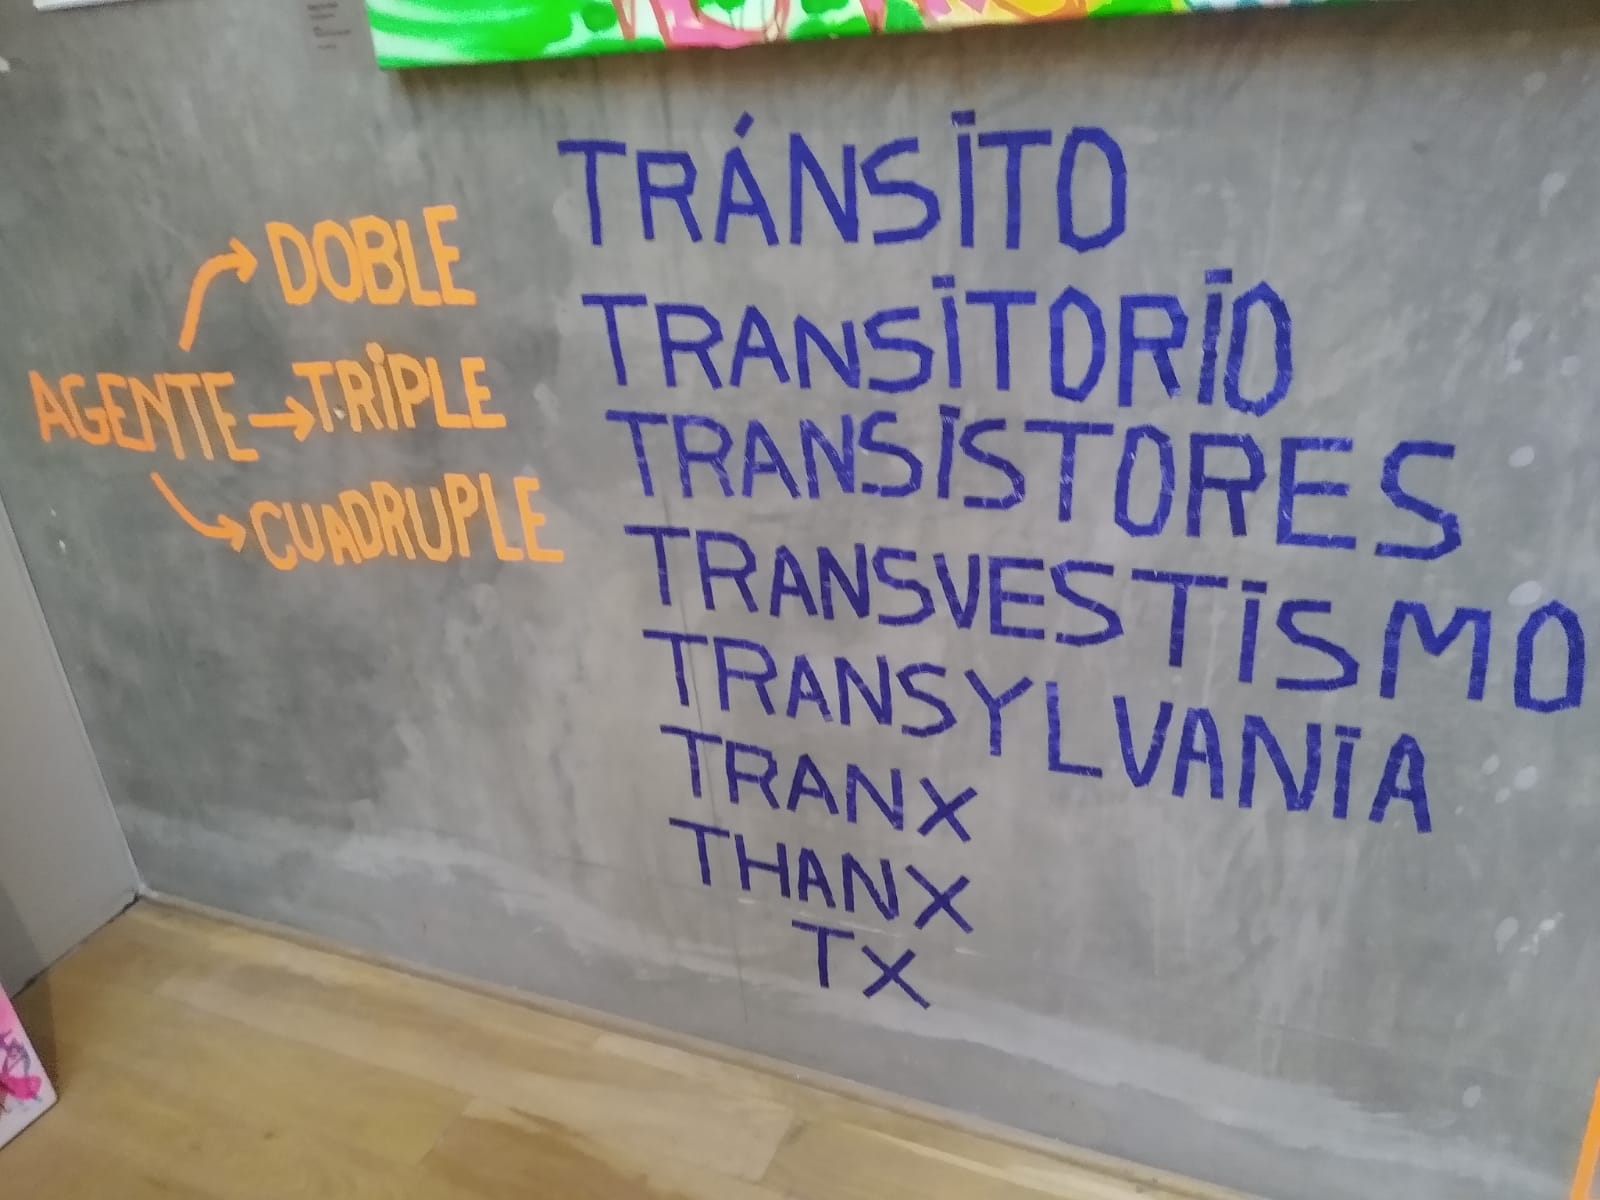 DOBLE
AGENTE → TRIPLE
CUADRUPLE
TRÁNSITO
TRANSITORIO
TRANSISTORES
TRANSVESTISMO
TRANSYLVANIA
TRANX
THANX
TX